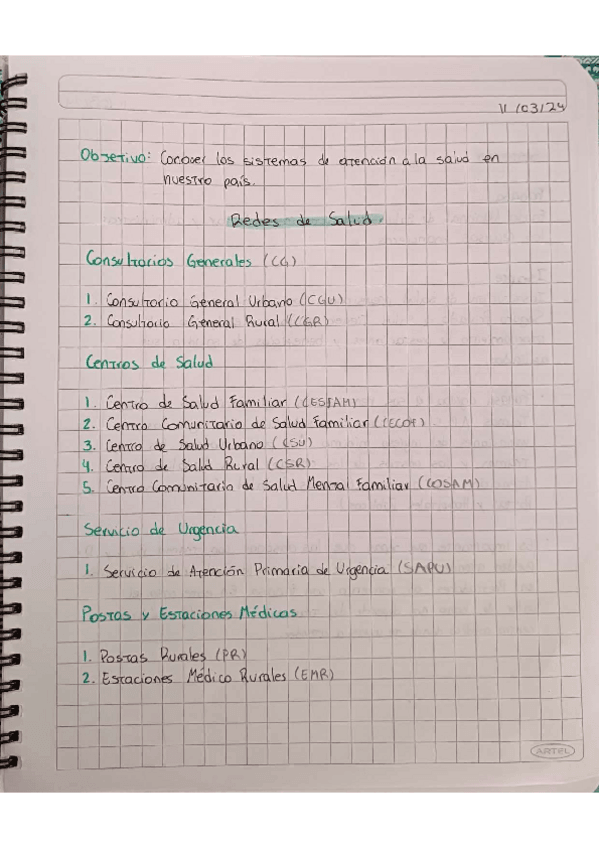 11/03/24
Objetivo: Conocer los sistemas de atención a la salud en
nuestro país.
Redes de Salud.
Consultorios Generales (CG)
1. Consultorio General Urbano (CGU)
2. Consultorio General Rural (CGR)
Centros de Salud
1. Centro de Salud Familiar (CESFAM)
2. Centro Comunitario de Salud Familiar (CECOF)
3. Centro de Salud Urbano (CSU)
4. Centro de Salud Rural (CSR)
5. Centro Comunitario de Salud Mental Familiar (COSAM)
Servicio de Urgencia
1. Servicio de Atención Primaria de Urgencia (SAPU)
Postas y Estaciones Médicas
1. Postas Rurales (PR)
2. Estaciones Médico Rurales (EMR)
ARTEL